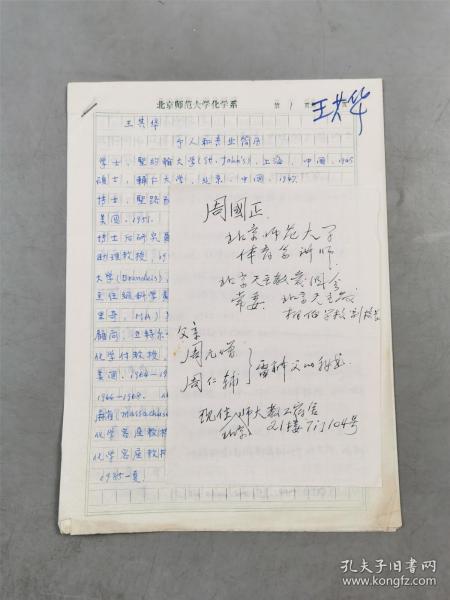 北京师范大学化学系
第 1 页
王共华
王共华
个人和专业简历
学士，圣约翰大学(St. John's)，上海，中国，1945
硕士，辅仁大学，北京，中国，1947.
博士，圣路
美国，1951.
博士后研究员
助理教授，195
大学(Brandeis)，
主任级科学
里奇，(MA)
顾问，
化学付教授，
美国，1964-19
1966-1968，
麻省(Massachuse
化学客座教授
化学客座教授
1985-夏）
周國正
北京师范大学
体育系讲师
北京天主教爱国会
常委
父亲
周允增
周仁辅
现住师大教工宿舍
北京 21楼7门104号
孔夫子旧书网
www.kongfz.com